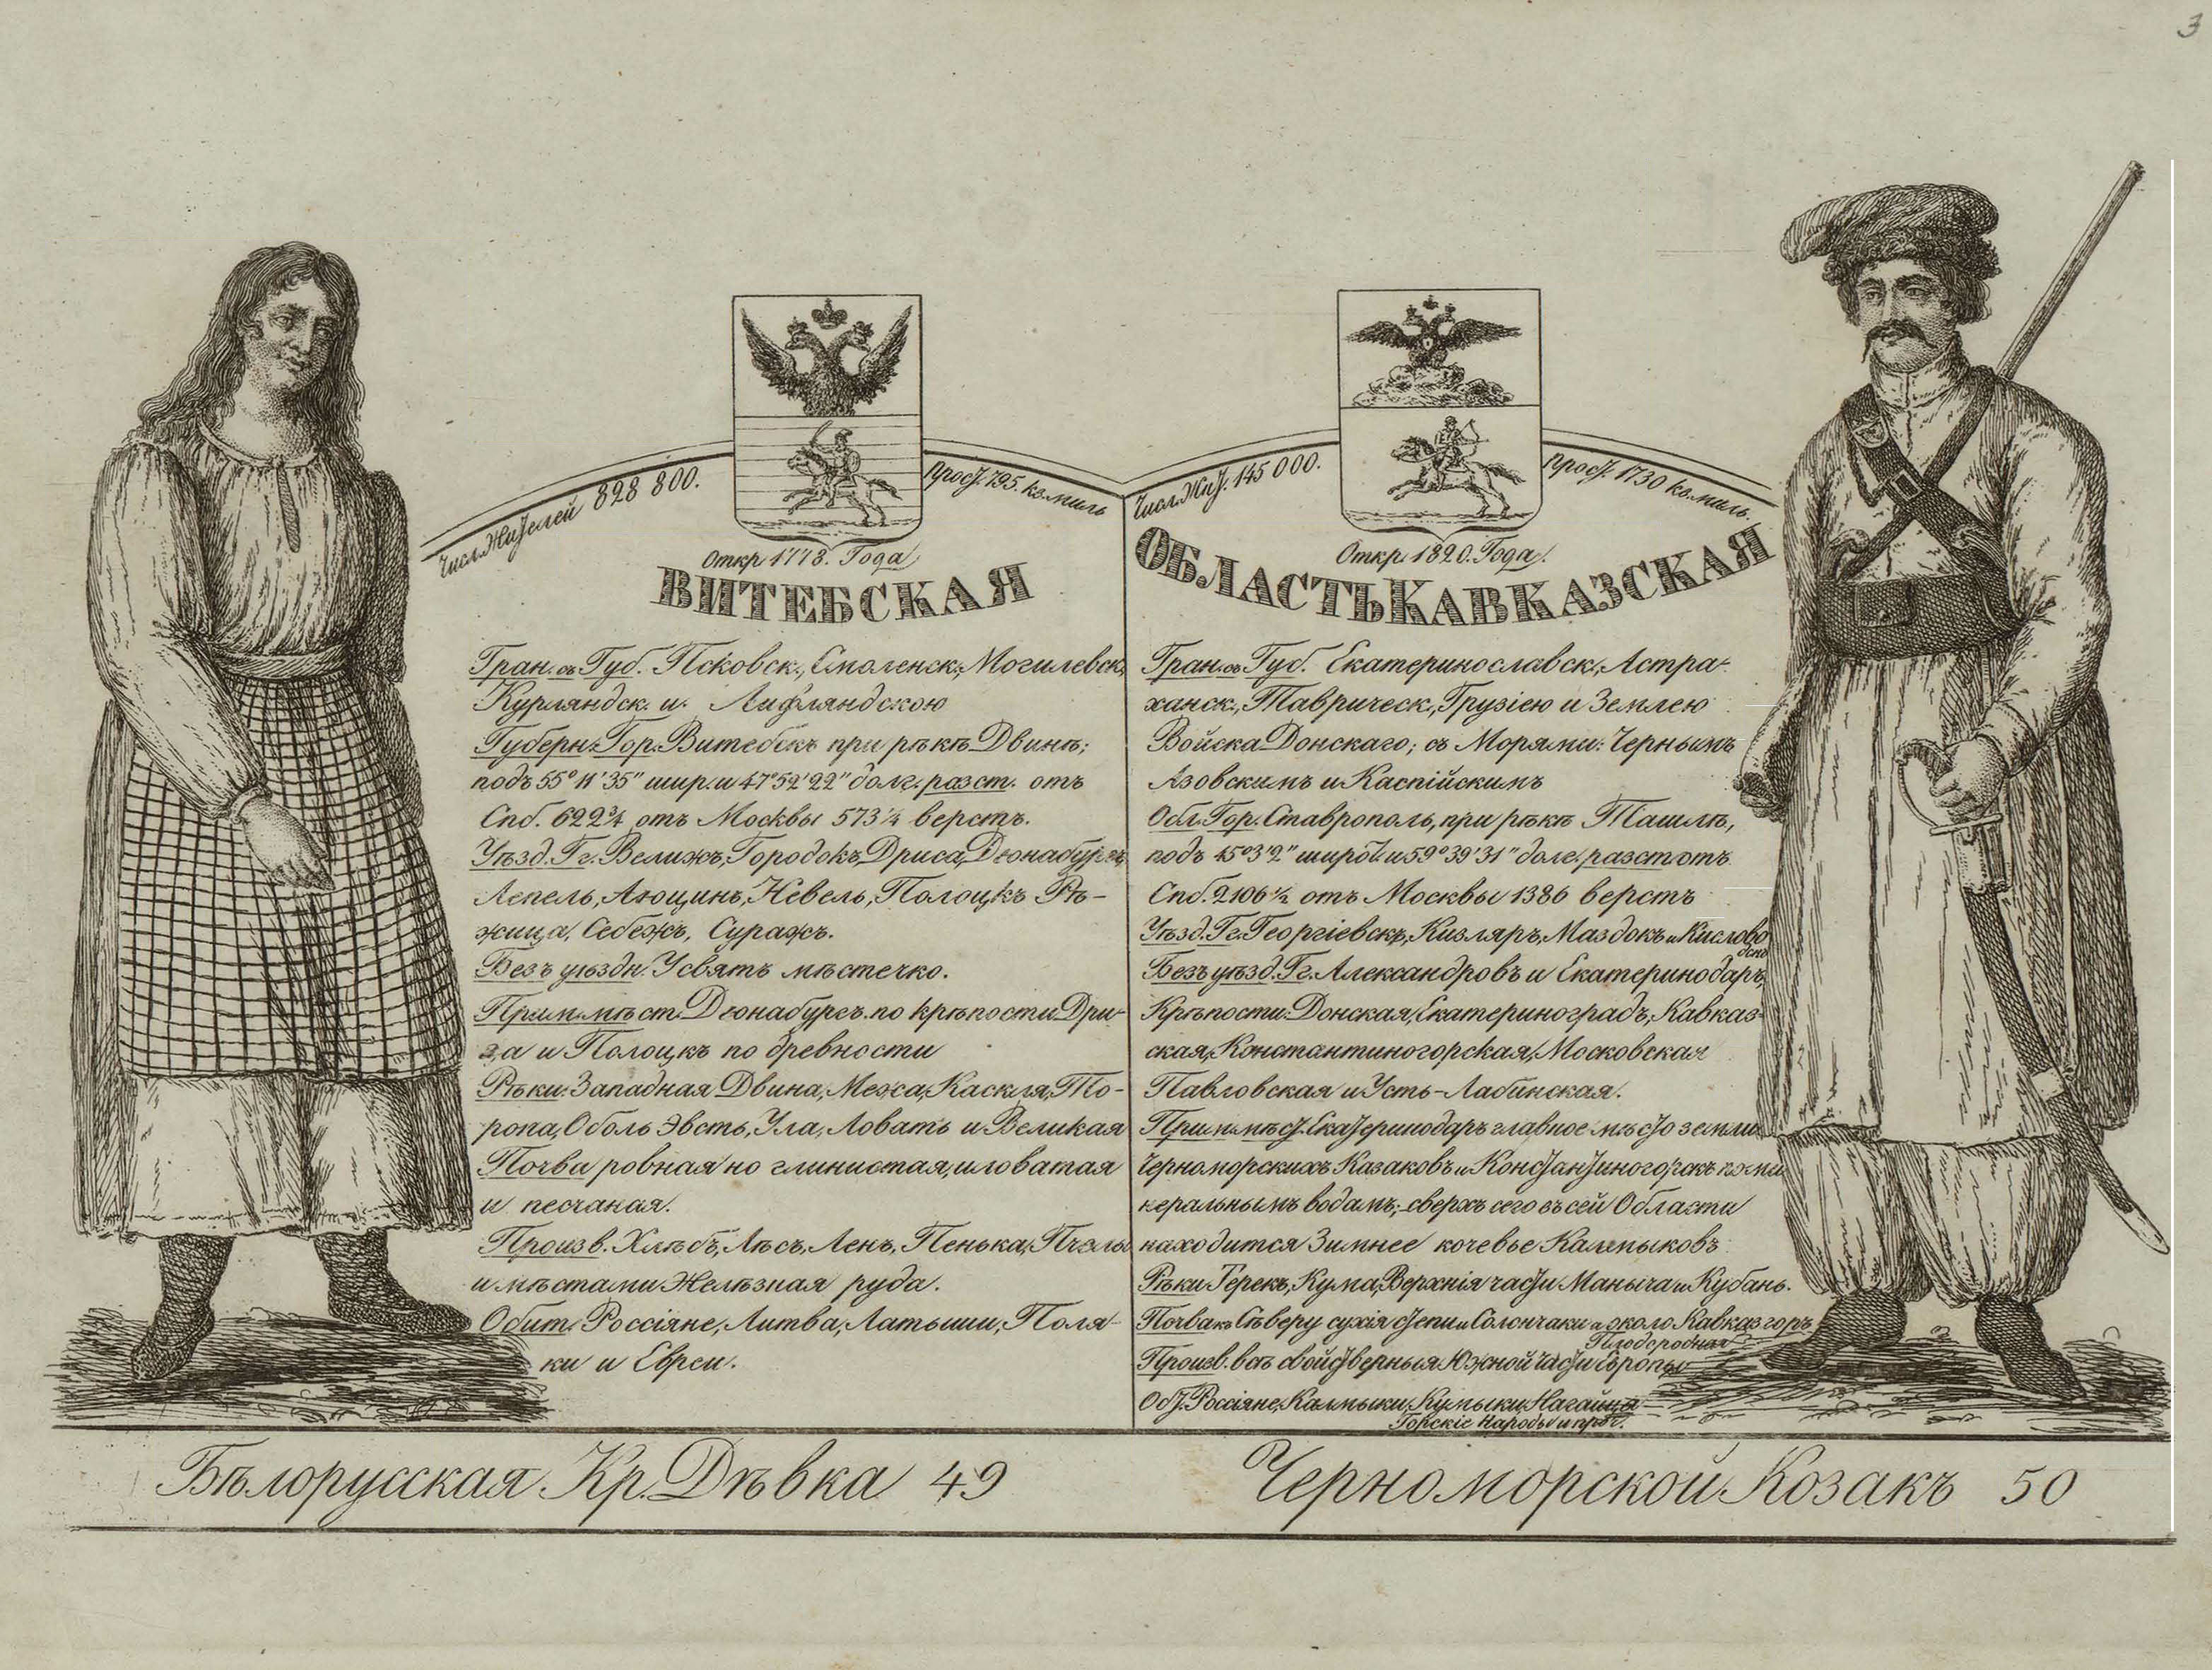 3
Числ. Жителей 828 800.
Прост. 795. кв. миль
Откр 1778. Года
ВИТЕБСКАЯ
Гран. съ Губ. Псковск., Смоленск, Могилевск,
Курляндск. и Лифляндскою
Губерн. Гор. Витебскъ при рѣкѣ Двинѣ;
подъ 55° 11' 35" шир. и 47° 52' 22" долг. разст. отъ
Спб. 622¾ отъ Москвы 573¼ верстъ.
Уѣзд. Гг. Велижъ, Городокъ, Дриса, Дюнабургъ,
Лепель, Люцинъ, Невель, Полоцкъ Рѣ-
жица, Себежъ, Суражъ.
Безъ уѣздн. Усвятъ мѣстечко.
Прим. мѣст. Дюнабургъ по крѣпости Дри-
за и Полоцкъ по древности
Рѣки: Западная Двина, Межа, Каспля, То-
ропа, Оболь Эвстъ, Ула, Ловать и Великая
Почва ровная но глинистая, иловатая
и песчаная.
Произв. Хлѣбъ, Лѣсъ, Ленъ, Пенька, Пчелы
и мѣстами Желѣзная руда.
Обит. Россіяне, Литва, Латыши, Поля-
ки и Евреи.
Числ. Жит. 145 000.
Прост. 1730 кв. миль.
Откр. 1820. Года.
ОБЛАСТЬ КАВКАЗСКАЯ
Гран. съ Губ. Екатеринославск, Астра-
ханск., Таврическ., Грузіею и Землею
Войска Донскаго; съ Морями: Чернымъ
Азовскимъ и Каспійскимъ
Обл. Гор. Ставрополь, при рѣкѣ Ташлѣ,
подъ 45° 3' 2" широт. и 59° 39' 31" долг. разст отъ
Спб. 2106½ отъ Москвы 1386 верстъ
Уѣзд. Гг. Георгіевскъ, Кизляръ, Маздокъ и Кислово
дскъ
Безъ уѣзд. Гг. Александровъ и Екатеринодаръ,
Крѣпости: Донская, Екатериноградъ, Кавказ-
ская, Константиногорская, Московская
Павловская и Усть-Лабинская.
Прим. мѣст. Екатеринодаръ главное мѣсто земли
Черноморскихъ Казаковъ и Константиногорскъ по ми
неральнымъ водамъ; сверхъ сего въ сей Области
находится Зимнее кочевье Калмыковъ
Рѣки Терекъ, Кума, Верхнія части Маныча и Кубань.
Почва къ Сѣверу сухія степи и Солончаки а около Кавказ горъ
Плодородная
Произв. всѣ свойственныя Южной части Европы
Обт. Россіяне, Калмыки, Кумыки, Нагайцы
Горскіе Народы и проч.
Бѣлорусская Кр. Дѣвка 49
Черноморской Козакъ 50